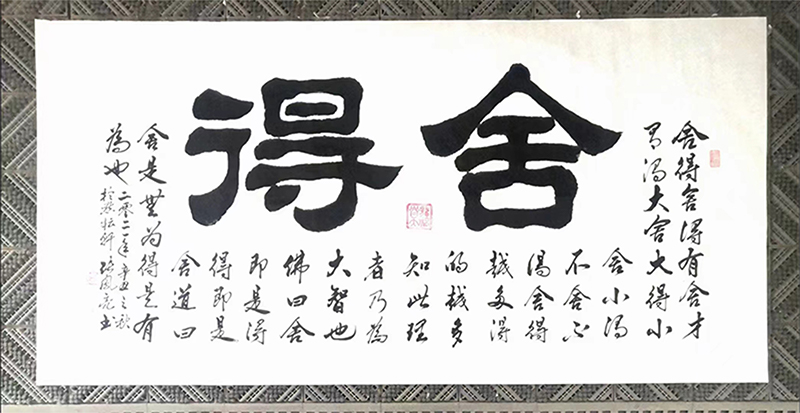 舍得
舍得舍得有舍才
有得大舍大得小
舍小得
不舍不
得舍得
越多得
的越多
知此理
者乃為
大智也
佛曰舍
即是得
得即是
舍道曰
舍是無为得是有
為也
二零二一年辛丑之秋
於